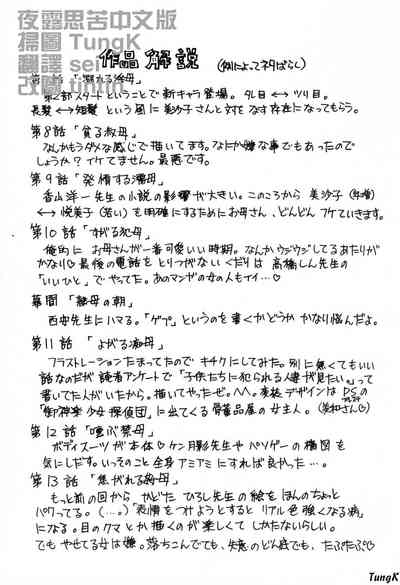 夜露思苦中文版
掃圖 TungK
翻譯 sei
改圖
作品解説 (例によってネタばらし)
第2部スタートということで新キャラ登場。タレ目 ↔ ツリ目。
長髪 ↔ 短髪 という風に美沙子さんと対をなす存在になってもらう。
第8話「貧る叔母」
なんかもうダメな感じで描いてます。なにか嫌な事でもあったので
しょうか?イケてません。最悪です。
第9話「発情する濡母」
香山洋一先生の小説の影響が大きい。このころから 美沙子
↔ 悦美子(若い)を明確にするためにお母さん、どんどん フケていきます。
第10話
俺的に お母さんが一番可愛いい時期。なんかウジウジしてるあたりが
かなり♡ 最後の電話を とりつがない くだりは 高橋しん先生の
「いいひと」でやってた。あのマンガの女の人もイイ…♡
幕間「の朝」
西安先生にハマる。「ゲプ」というのを書くかどうか かなり悩んだよ。
第11話「よがる母」
フラストレーションたまってたので キチクにしてみた。別に無くてもいい
書いてた人がいたから。描いてやったぜ。へへ。髪デザインは PSの
「御神楽少女探偵団」に出てくる骨董品屋の女主人。(美和さん♡)
第12話「禁母」
ボディスーツが本体♡ ケン月影先生や 構図を
気にしだす。いっそのこと 全身アミアミ にすれば良かった…。
第13話「焦がれる母」
もっと前の回から かどたひろし先生の絵を ほんのちょっと
パクってる。(…。)「表情をつけようとすると リアル色 強くなる病」
になる。目のクマとか描くのが楽しくて しかたないらしい。
でもやせてる女は嫌。落ちこんでても、失意のどん底でも、たぷたぷ♡
TungK